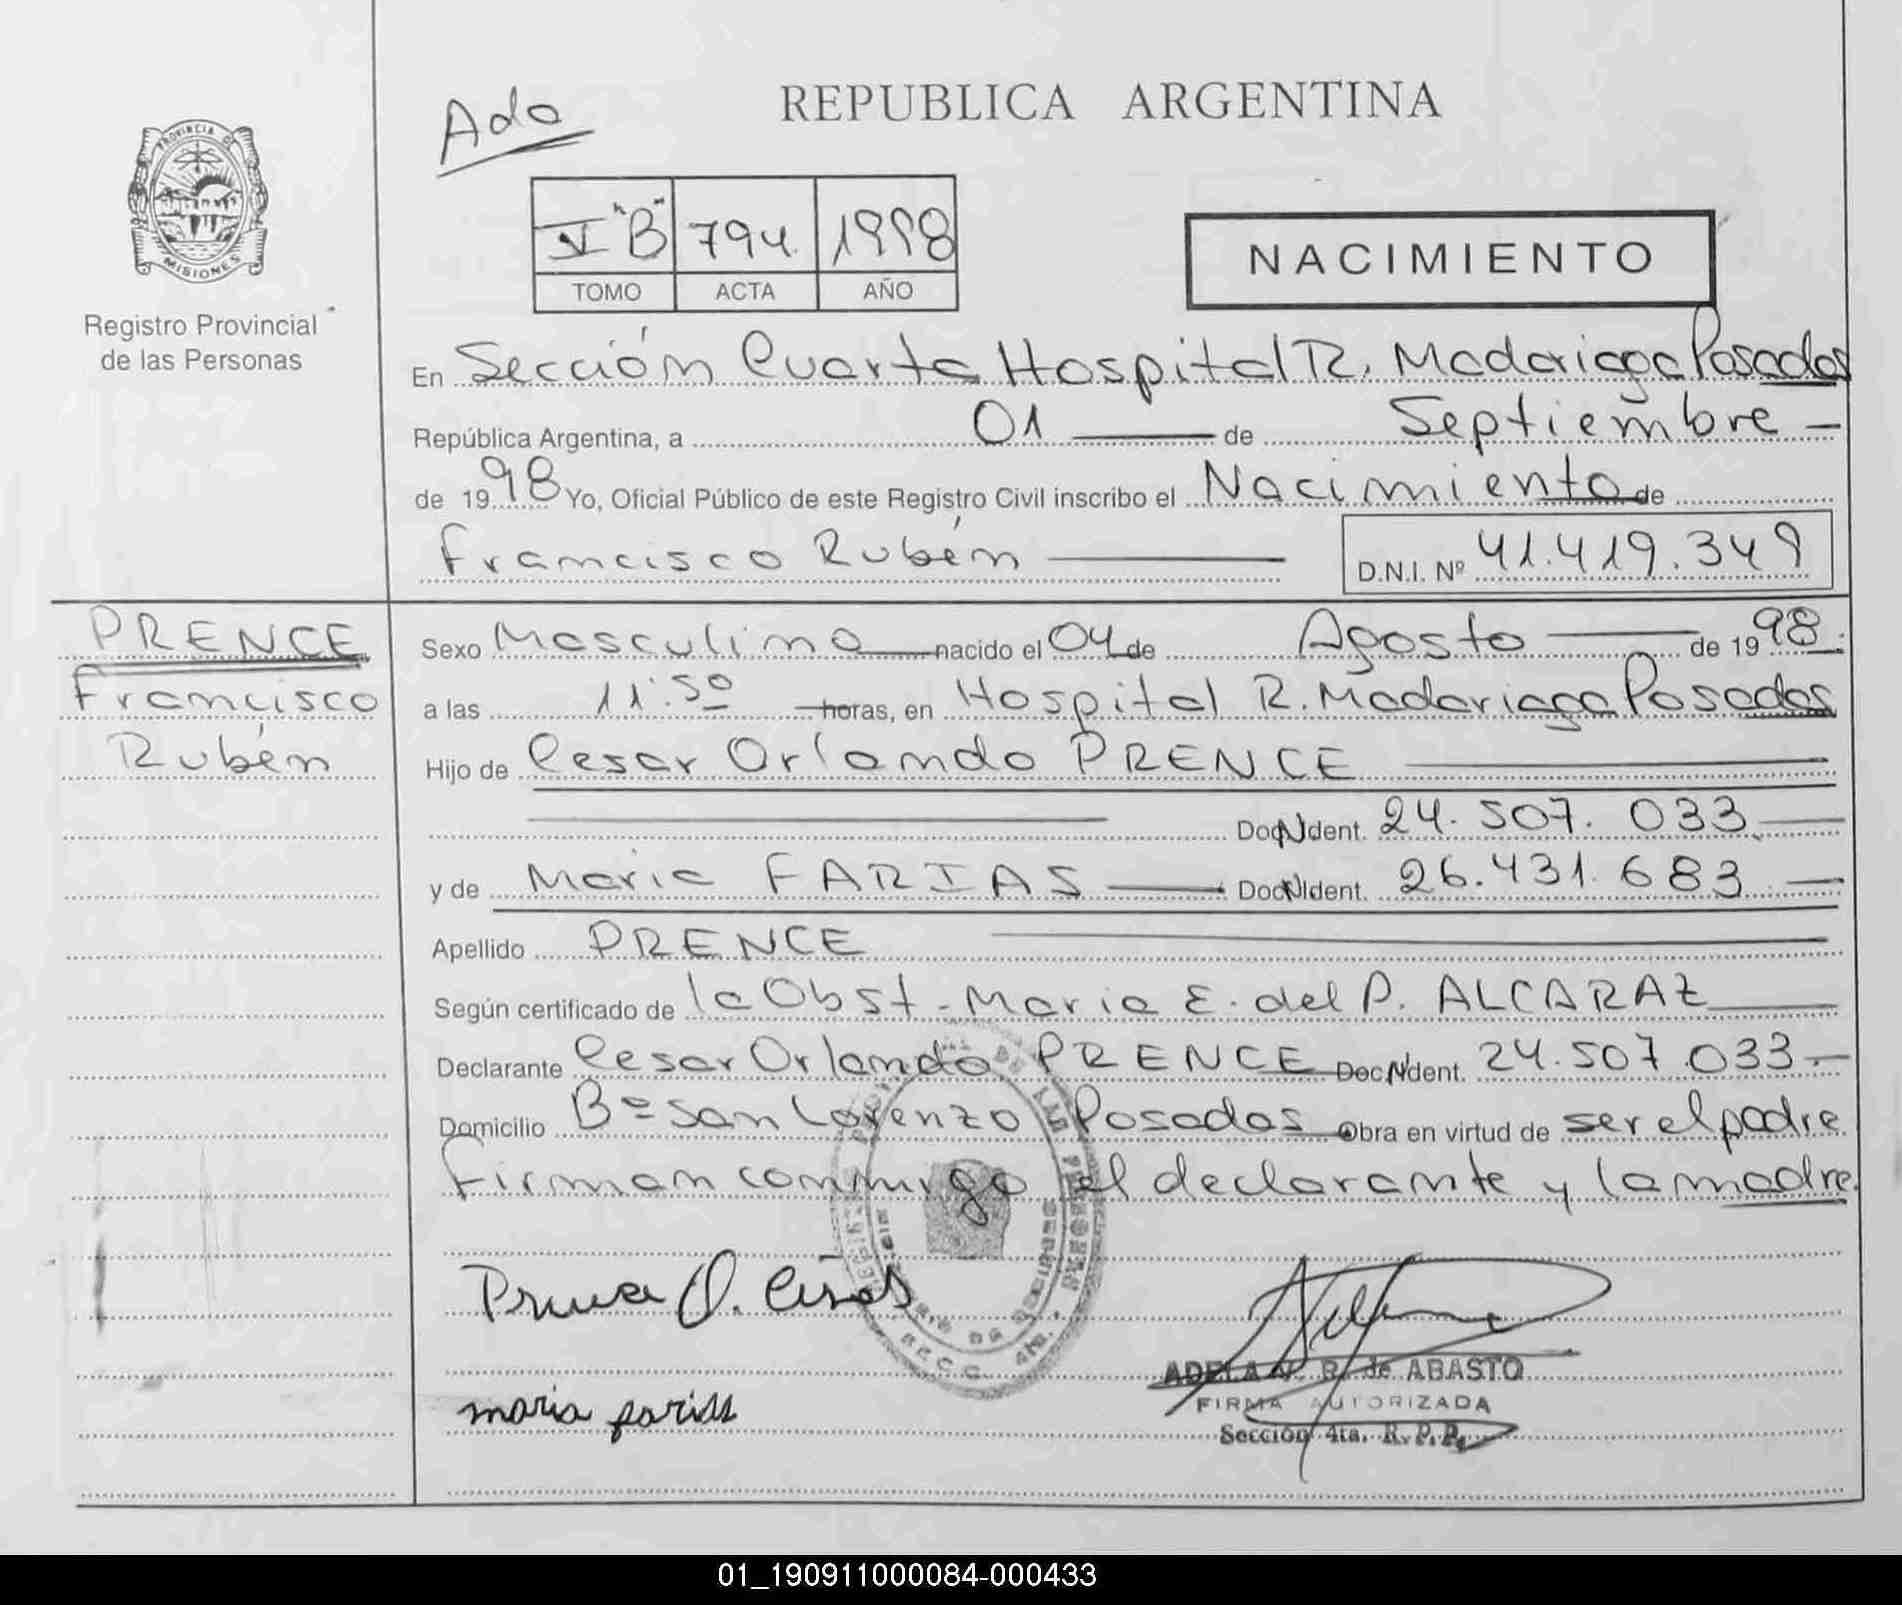 REPUBLICA ARGENTINA
Ado
PROVINCIA DE
MISIONES
Registro Provincial
de las Personas
V "B" 794 1998
TOMO ACTA AÑO
NACIMIENTO
En Sección Cuarta Hospital R. Madariaga Posadas
República Argentina, a 01 de Septiembre
de 19 98 Yo, Oficial Público de este Registro Civil inscribo el Nacimiento de
Francisco Rubén D.N.I. Nº 41.419.349
PRENCE
Francisco
Rubén
Sexo Masculino nacido el 04 de Agosto de 19 98
a las 11:50 horas, en Hospital R. Madariaga Posadas
Hijo de Cesar Orlando PRENCE
Doc. Ident. 24.507.033
y de Maria FARIAS Doc. Ident. 26.431.683
Apellido PRENCE
Según certificado de la Obst. Maria E. del P. ALCARAZ
Declarante Cesar Orlando PRENCE Doc. Ident. 24.507.033
Domicilio Bº San Lorenzo Posadas Obra en virtud de ser el padre
Firman conmigo el declarante y la madre.
O.
maria farias
ADELA N. R. de ABASTO
FIRMA AUTORIZADA
Sección 4ta. R.P.P.
01_190911000084-000433